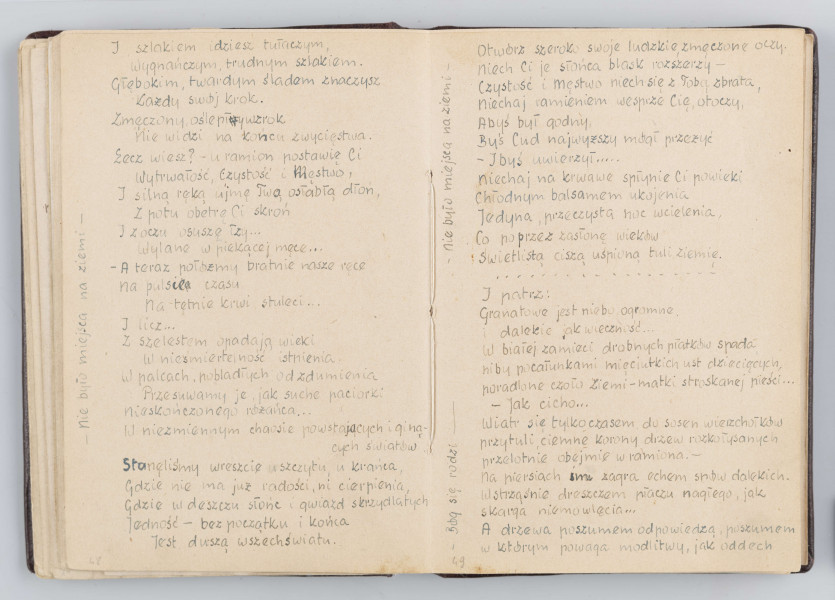 I szlakiem idziesz tułaczym,
Wygnańczym, trudnym szlakiem.
Głębokim, twardym śladem znaczysz
Każdy swój krok.
Zmęczony, oślepły wzrok
Nie widzi na końcu zwycięstwa.
Lecz wiesz? - u ramion postawię Ci
Wytrwałość, Czystość i Męstwo,
I silną ręką ujmę Twą osłabłą dłoń,
Z potu obetrę Ci skroń
I z oczu osuszę łzy...
Wylane w piekącej męce...
- A teraz połóżmy bratnie nasze ręce
Na pulsie czasu
Na tętnie krwi stuleci...
I licz...
Z szelestem opadają wieki
W nieśmiertelność istnienia.
W palcach, pobladłych od zdumienia
Przesuwamy je, jak suche paciorki
Nieskończonego różańca...
W niezmiennym chaosie powstających i giną-
cych światów
Stanęliśmy wreszcie u szczytu, u krańca,
Gdzie nie ma już radości, ni cierpienia,
Gdzie w deszczu słońc i gwiazd skrzydlatych
Jedność - bez początku i końca
Jest duszą wszechświatu.
48
- Nie było miejsca na ziemi -
Otwórz szeroko swoje ludzkie, zmęczone oczy -
Niech Ci je słońca blask rozszerzy -
Czystość i Męstwo niech się z Tobą zbrata,
Niechaj ramieniem wesprze Cię, otoczy,
Abyś był godny,
Byś Cud najwyższy mógł przeżyć
- I byś uwierzył.....
Niechaj na krwawe spłynie Ci powieki
Chłodnym balsamem ukojenia
Jedyna, przeczysta noc wcielenia,
Co poprzez zasłonę wieków
Świetlistą ciszą uśpioną tuli ziemię.
. . . . . . . . . . . . . . .
I patrz:
Granatowe jest niebo, ogromne,
i dalekie jak wieczność...
W białej zamieci drobnych płatków spada
niby pocałunkami mięciutkich ust dziecięcych,
poradlone czoło Ziemi-matki stroskanej pieści...
- Jak cicho...
Wiatr się tylko czasem do sosen wierzchołków
przytuli, ciemne korony drzew rozkołysanych
przelotnie obejmie w ramiona. -
Na piersiach im zagra echem snów dalekich.
Wstrząśnie dreszczem płaczu nagłego, jak
skarga niemowlęcia...
A drzewa poszumem odpowiedzą, poszumem
w którym powaga modlitwy, jak oddech
49
- Nie było miejsca na ziemi -
- Bóg się rodzi -